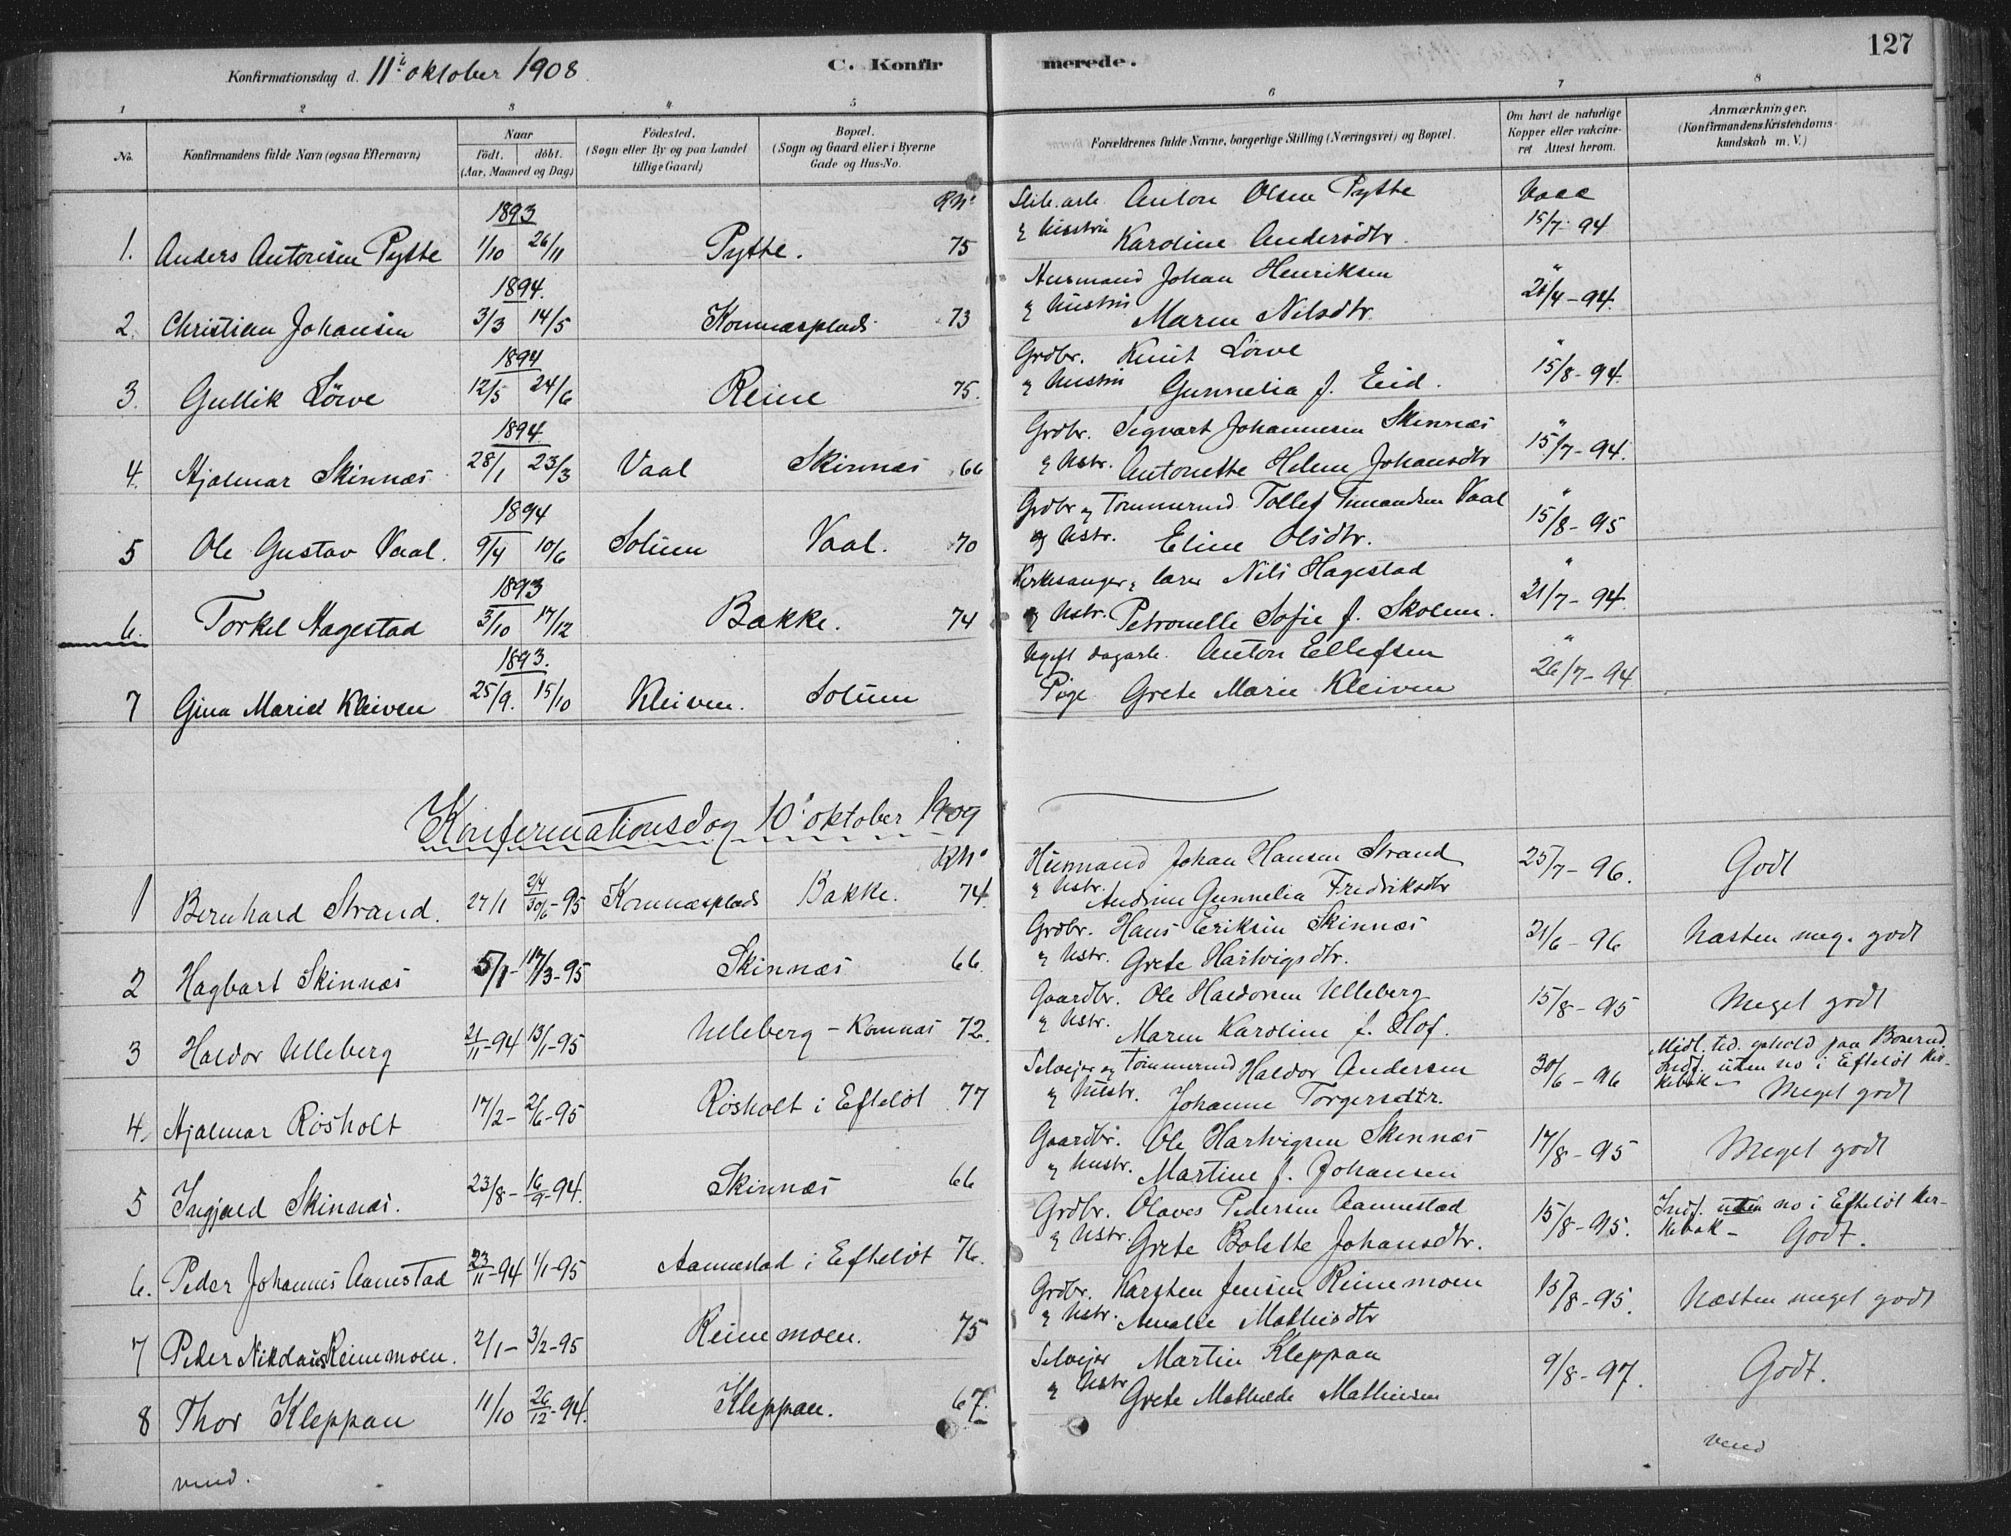 127
Konfirmationsdag d. 11' oktober 1908.
C. Konfirmerede.
1 2 3 4 5 6 7 8
No. Konfirmandens fulde Navn (ogsaa Efternavn)
Naar
født. døbt.
(Aar, Maaned og Dag)
Fødested.
(Sogn eller By og paa Landet
tillige Gaard)
Bopæl.
(Sogn og Gaard eller i Byerne
Gade og Hus-No.
Forældrenes fulde Navne, borgerlige Stilling (Næringsvei) og Bopæl.
Om havt de naturlige
Kopper eller vakcineret. Attest herom.
Anmærkninger.
(Konfirmandens Kristendomskundskab m. V.)
1893 Anton Olsen Pytte Vacc
1. Anders Antonsen Pytte 1/10 26/11 Pytte. 75 & hustru Karoline Andersdtr. 15/7-94
1894. Johan Henriksen "
2. Christian Johansen 3/3 14/5 Komnæsplads 73 & hustru Maren Nilsdtr. -94.
1894 Grdbr. Knut Löwe "
3. Gullik Löwe 12/5 24/6 Reine 75. & hustru Gunnelia f. Eid. 15/8-94.
1894 Grdbr. Sigvart Johannesen Skinnæs "
4. Hjalmar Skinnæs 28/1 23/3 Vaal Skinnæs 66 & Hstr. Antonette Helene Johansdtr 15/7-94.
1894 Grdbr & Tömmermd Tollef Vaal "
5 Ole Gustav Vaal. 9/4 10/6 Solum Vaal. 70 & Hstr. Eline Olsdtr. 15/8-95
1893 Kirkesanger & lærer Nils Hagestad "
6. Torkel Hagestad 3/10 17/12 Bakke. 74 & Hstr. Petronelle Sofie f. Skolem. 21/7-94.
1893. Ugift dagarb. Anton Ellefsen "
7 Gina Marie Kleiven 25/9. 15/10 Kleiven. Solum Pige Grete Marie Kleiven 26/7-94
Konfirmationsdag 10' oktober 1909
Husmand Johan Hansen Strand 25/7-96. Godt
1 Bernhard Strand. 27/1 30/6-95 Komnæsplads Bakke. 74. & Hstr. Andrine Gunnelia Fredriksdtr
Grdbr. Hans Eriksen Skinnæs 21/6-96 Næsten meg. godt
2 Hagbart Skinnæs 5/1- 17/3-95 Skinnæs 66. & Hstr. Grete Hartvigsdtr.
Gaardbr. Ole Haldorsen Ulleberg 15/8-95 Meget godt
3 Haldor Ulleberg 21/11-94 13/1-95 Ulleberg - Komnæs 72. & Hstr. Maren Karoline f. Olof.
Selveier og Tömmermd Haldor Andersen 30/6-96 Midl. tid. ophold paa Indf. uden no i Efteløt Kirkebok - Meget godt
4. Hjalmar Rösholt 17/2- 2/6-95 Rösholt i Efteløt 77 & Hustr. Johanne Torgersdtr.
Gaardbr. Ole Hartvigsen Skinnæs 17/8-95 Meget godt
5 Ingjald Skinnæs. 23/8- 16/9-94. Skinnæs 66 & Hustr. Martine f. Johansen
Grdbr. Olaves Pedersen Aannestad 15/8-95. Indf. uden no i Efteløt Kirkebok - Godt.
6. Peder Johannes Aanestad 23/11-94 1/1-95 Aannestad i Efteløt 76. & Hstr. Grete Bolette Johansdtr.
Grdbr. Karsten Jensen Reinemoen 15/8-95. Næsten meget godt
7 Peder Nikolaus Reinemoen. 2/1- 3/2-95 Reinemoen. 75 & Hstr. Amalie Mathisdtr
Selveier Martin Kleppan 9/8-97. Godt.
8 Thor Kleppan 11/10 26/12-94. Kleppan. 67. & Hstr Grete Mathilde Mathiesen
vend. vend